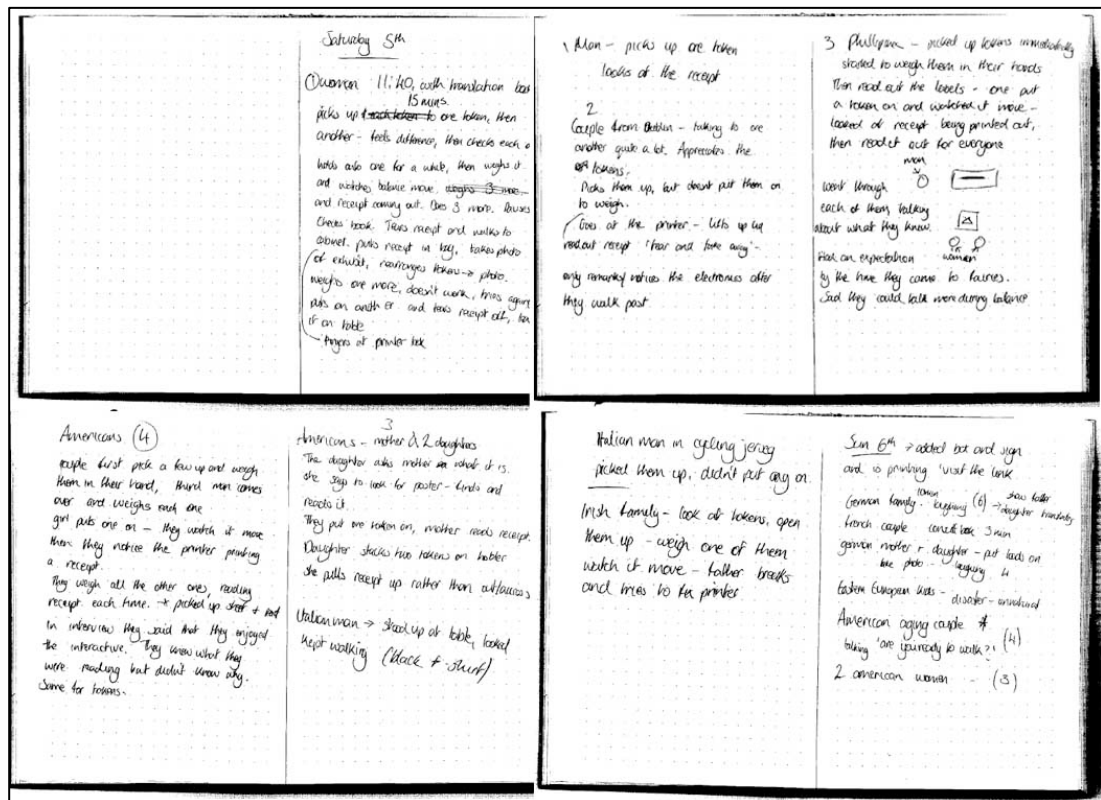 Saturday 5th
① woman 11:40, with translation boo
15 mins.
picks up one token, then
another - feels difference, then checks each o
holds onto one for a while, then weighs it
and watches balance move.
and receipt coming out. Does 3 more. Pauses
Checks book. Tears receipt and walks to
cabinet. puts receipt in bag, takes photo
of exhibit, rearranges tokens → photo.
weighs one more, doesn't work, tries again
puts on another and tears receipt off,
it on table
fingers at printer
1 Man - picks up one token
looks at the receipt
2
Couple from Dublin - talking to one
another quite a lot. Appreciates the
tokens.
Picks them up, but doesn't put them on
to weigh.
Goes at the printer - lifts up
read out receipt 'tear and take away' -
only remarks/notices the electronics after
they walk past
3 - picked up tokens immediately
started to weigh them in their hands
Then read out the labels - one put
a token on and watched it move -
looked at receipt being printed out,
then read it out for everyone
man
went through
each of them talking
about what they know.
women
Had an expectation
by the time they came to fairies.
Said they could talk more during balance
Americans (4)
couple first pick a few up and weigh
them in their hand, third man comes
over and weighs each one
girl puts one on - they watch it move
then they notice the printer printing
a receipt.
They weigh all the other ones, reading
receipt each time. → picked up sheet + read
In interview they said that they enjoyed
the interactive. They knew what they
were reading but didn't know why.
Same for tokens.
3
Americans - mother & 2 daughters
The daughter asks mother what it is.
she says to look for poster - finds and
reads it.
They put one token on, mother reads receipt.
Daughter stacks two tokens on holder
she pulls receipt up rather than out/across
Italian man → stood up at table, looked
kept walking (black t-shirt)
Italian man in cycling jersey
picked them up, didn't put any on.
Irish family - look at tokens, open
them up - weigh one of them
watch it move - father breaks
and tries to fix printer
Sun 6th → added box and sign
and is printing 'visit the
German family - laughing (6) → daughter translating
token
French couple 3 min
german mother + daughter - put loads on
take photo - laughing 4
Eastern European kids - disaster -
American aging couple
talking 'are you ready to walk?' (4)
2 american women - (3)